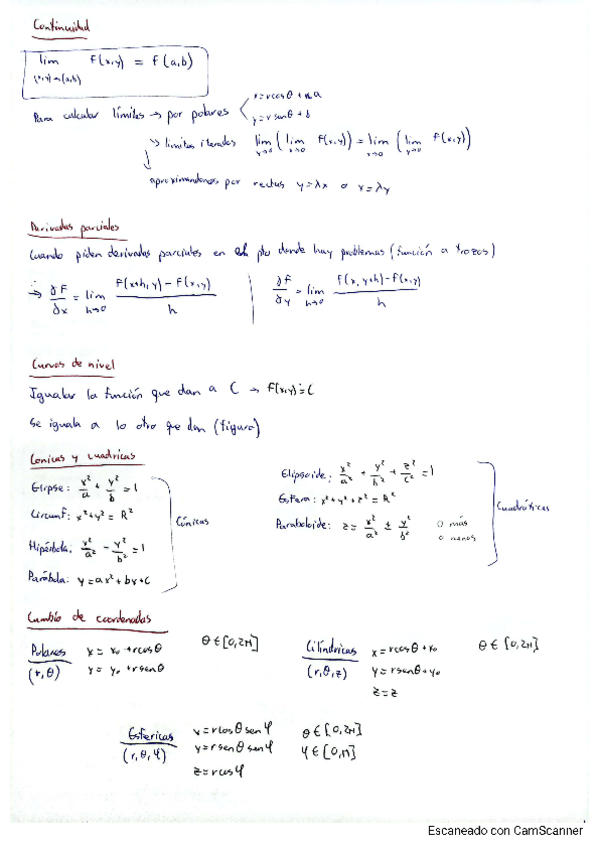 Continuidad
lim f(x,y) = f(a,b)
(x,y)→(a,b)
Para calcular límites → por polares x=rcosθ + a
y=r senθ + b
↘ límites iterados lim y→0 ( lim x→0 f(x,y)) = lim x→0 ( lim y→0 f(x,y))
aproximándonos por rectas y=λx o x=λy
Derivadas parciales
Cuando piden derivadas parciales en el pto donde hay problemas (función a trozos)
∂f/∂x = lim h→0 (f(x+h,y) - f(x,y))/h | ∂f/∂y = lim h→0 (f(x, y+h) - f(x,y))/h
Curvas de nivel
Igualar la función que dan a C → f(x,y) = C
Se iguala a lo otro que dan (figura)
Conicas y cuadricas
Elipse: x²/a + y²/b = 1
Circunf: x²+y² = R²
Hipérbola: x²/a² - y²/b² = 1
Parábola: y = ax² + bx + C
Cónicas
Elipsoide: x²/a² + y²/b² + z²/c² = 1
Esfera: x²+y²+z² = R²
Paraboloide: z = x²/a² ± y²/b² o más
o menos
Cuadráticas
Cambio de coordenadas
Polares x = x₀ + rcosθ θ∈[0,2π]
(r,θ) y = y₀ + rsenθ
Cilíndricas x = rcosθ + x₀ θ∈[0,2π]
(r,θ,z) y = rsenθ + y₀
z = z
Esfericas x = rcosθ senφ θ∈[0,2π]
(r,θ,φ) y = rsenθ senφ φ∈[0,π]
z = rcosφ
Escaneado con CamScanner